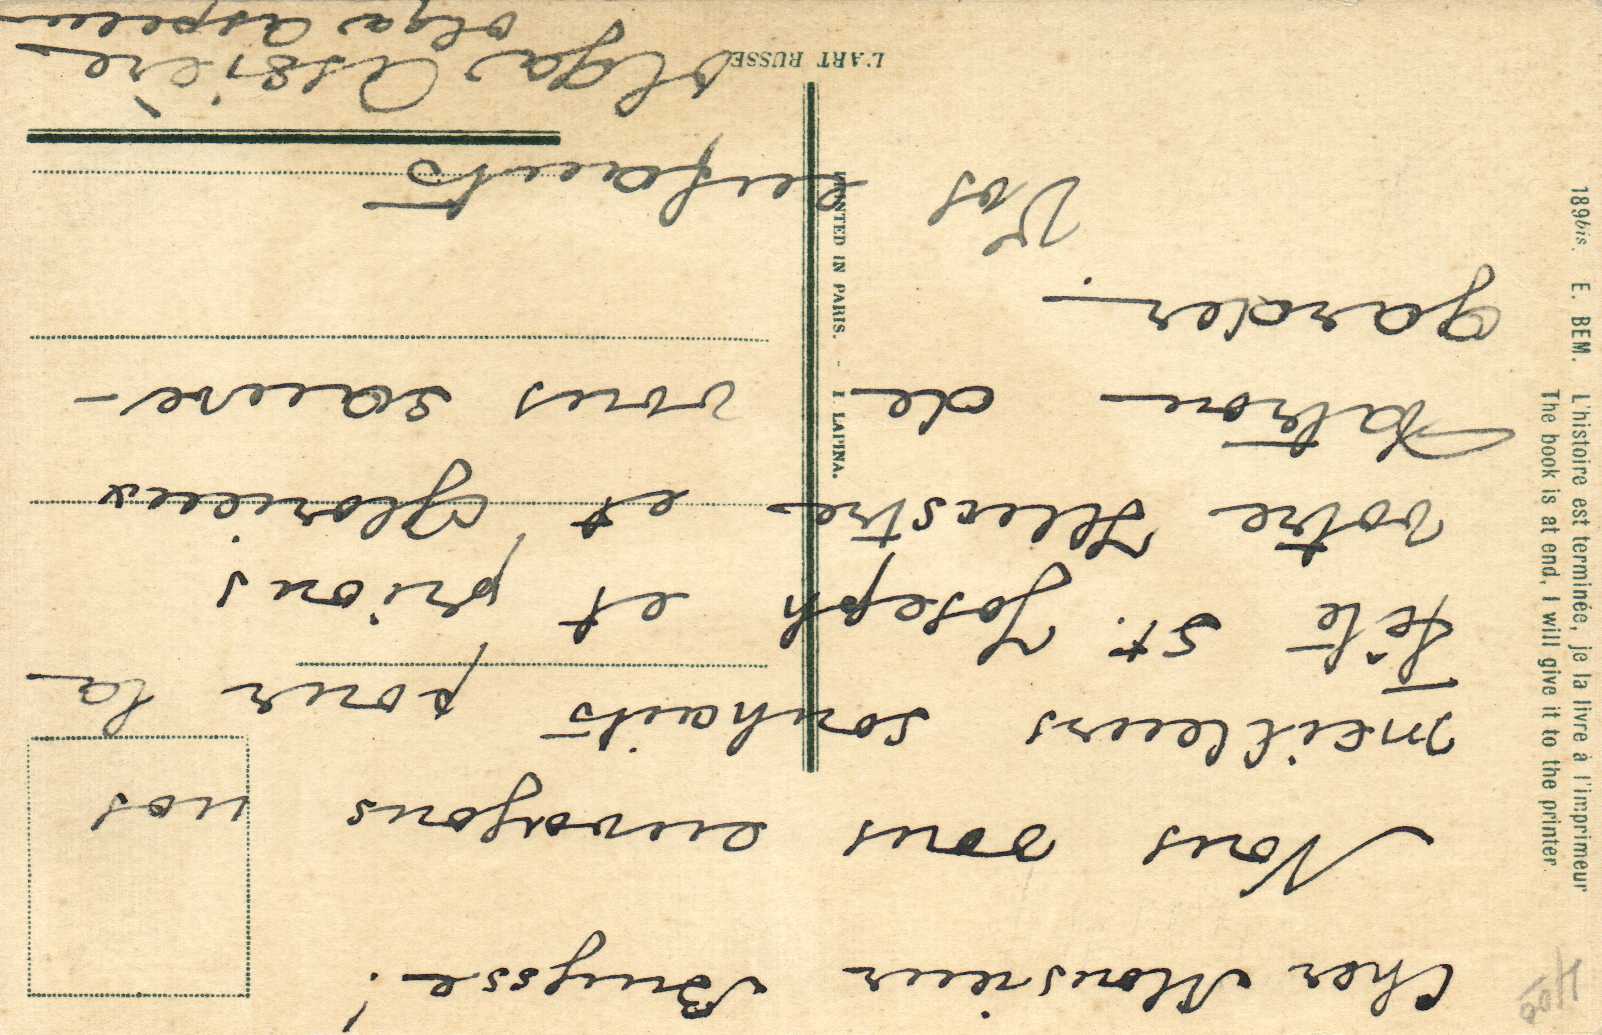 Cher Monsieur Buysse!
Nous vous envoyons nos
meilleurs souhaits pour la
Fête St. Joseph et prions
votre Illustre et Glorieux
Patron de vous sauve-
garder.
Vos enfants
Olga
Olga
L'ART RUSSE
PRINTED IN PARIS. - I LAPINA.
189bis. E. BEM. L'histoire est terminée, je la livre à l'imprimeur
The book is at end, I will give it to the printer.